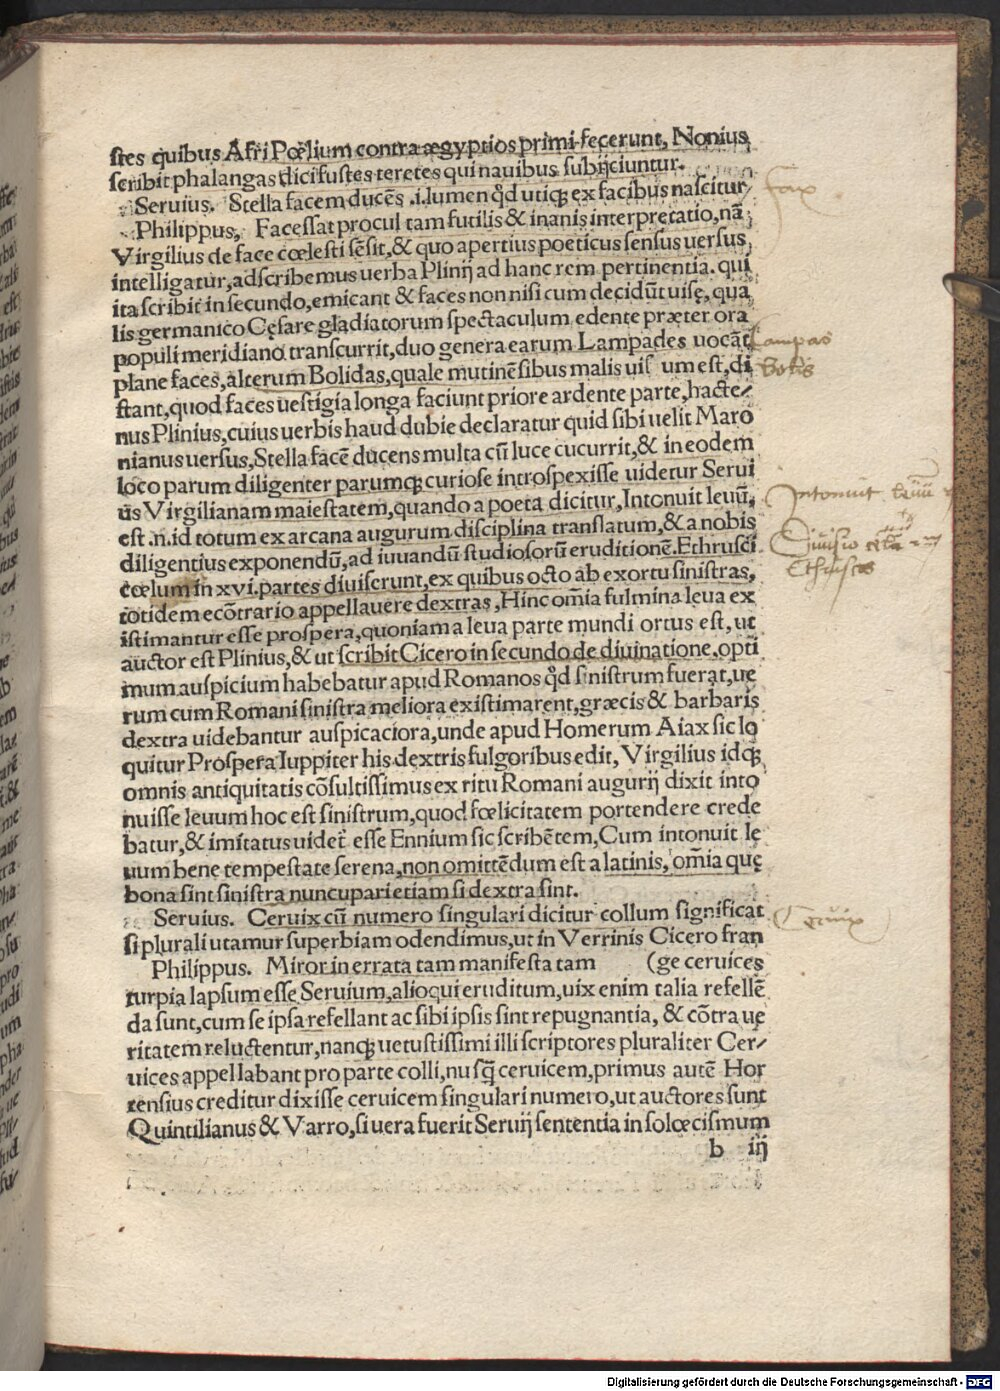 stes quibus Afri Pœlium contra ægyptios primi fecerunt, Nonius
scribit phalangas dici fustes teretes qui nauibus subijciuntur.
Seruius. Stella facem ducēs .i. lumen qd utiqꝫ ex facibus nascitur
Philippus, Facessat procul tam futilis & inanis interpretatio, nā
Virgilius de face cœlesti sēsit, & quo apertius poeticus sensus uersus
intelligatur, adscribemus uerba Plinij ad hanc rem pertinentia. qui
ita scribit in secundo, emicant & faces non nisi cum decidūt uisę, qua
lis germanico Cęsare gladiatorum spectaculum edente præter ora
populi meridiano transcurrit, duo genera earum Lampades uocāt
plane faces, alterum Bolidas, quale mutinēsibus malis uisum est, di
stant, quod faces uestigia longa faciunt priore ardente parte, hacte/
nus Plinius, cuius uerbis haud dubie declaratur quid sibi uelit Maro
nianus uersus, Stella facē ducens multa cū luce cucurrit, & in eodem
loco parum diligenter parumqꝫ curiose introspexisse uidetur Serui
us Virgilianam maiestatem, quando a poeta dicitur, Intonuit leuū,
est .n. id totum ex arcana augurum disciplina translatum, & a nobis
diligentius exponendū, ad iuuandū studiosorū eruditionē. Ethrusci
cœlum in xvi. partes diuiserunt, ex quibus octo ab exortu sinistras,
totidem ecōtrario appellauere dextras, Hinc oīa fulmina leua ex
istimantur esse prospera, quoniam a leua parte mundi ortus est, ut
auctor est Plinius, & ut scribit Cicero in secundo de diuinatione, opti
mum auspicium habebatur apud Romanos qd sinistrum fuerat, ue
rum cum Romani sinistra meliora existimarent, græcis & barbaris
dextra uidebantur auspicaciora, unde apud Homerum Aiax sic lo
quitur Prospera Iuppiter his dextris fulgoribus edit, Virgilius idqꝫ
omnis antiquitatis cōsultissimus ex ritu Romani augurij dixit into
nuisse leuum hoc est sinistrum, quod fœlicitatem portendere crede
batur, & imitatus uidet esse Ennium sic scribētem, Cum intonuit lę
uum bene tempestate serena, non omittēdum est a latinis, oīa quę
bona sint sinistra nuncupari etiam si dextra sint.
Seruius. Ceruix cū numero singulari dicitur collum significat
si plurali utamur superbiam odendimus, ut in Verrinis Cicero fran
Philippus. Miror in errata tam manifesta tam (ge ceruices
turpia lapsum esse Seruium, alioqui eruditum, uix enim talia refellē
da sunt, cum se ipsa refellant ac sibi ipsis sint repugnantia, & cōtra ue
ritatem reluctentur, nanqꝫ uetustissimi illi scriptores pluraliter Cer/
uices appellabant pro parte colli, nusq̄ ceruicem, primus autē Hor
tensius creditur dixisse ceruicem singulari numero, ut auctores sunt
Quintilianus & Varro, si uera fuerit Seruij sententia in solœcismum
b iij
fax
Lampas
Bolis
Intonuit leuū
Diuisio
Ethrusces
Ceruix
Digitalisierung gefördert durch die Deutsche Forschungsgemeinschaft - DFG